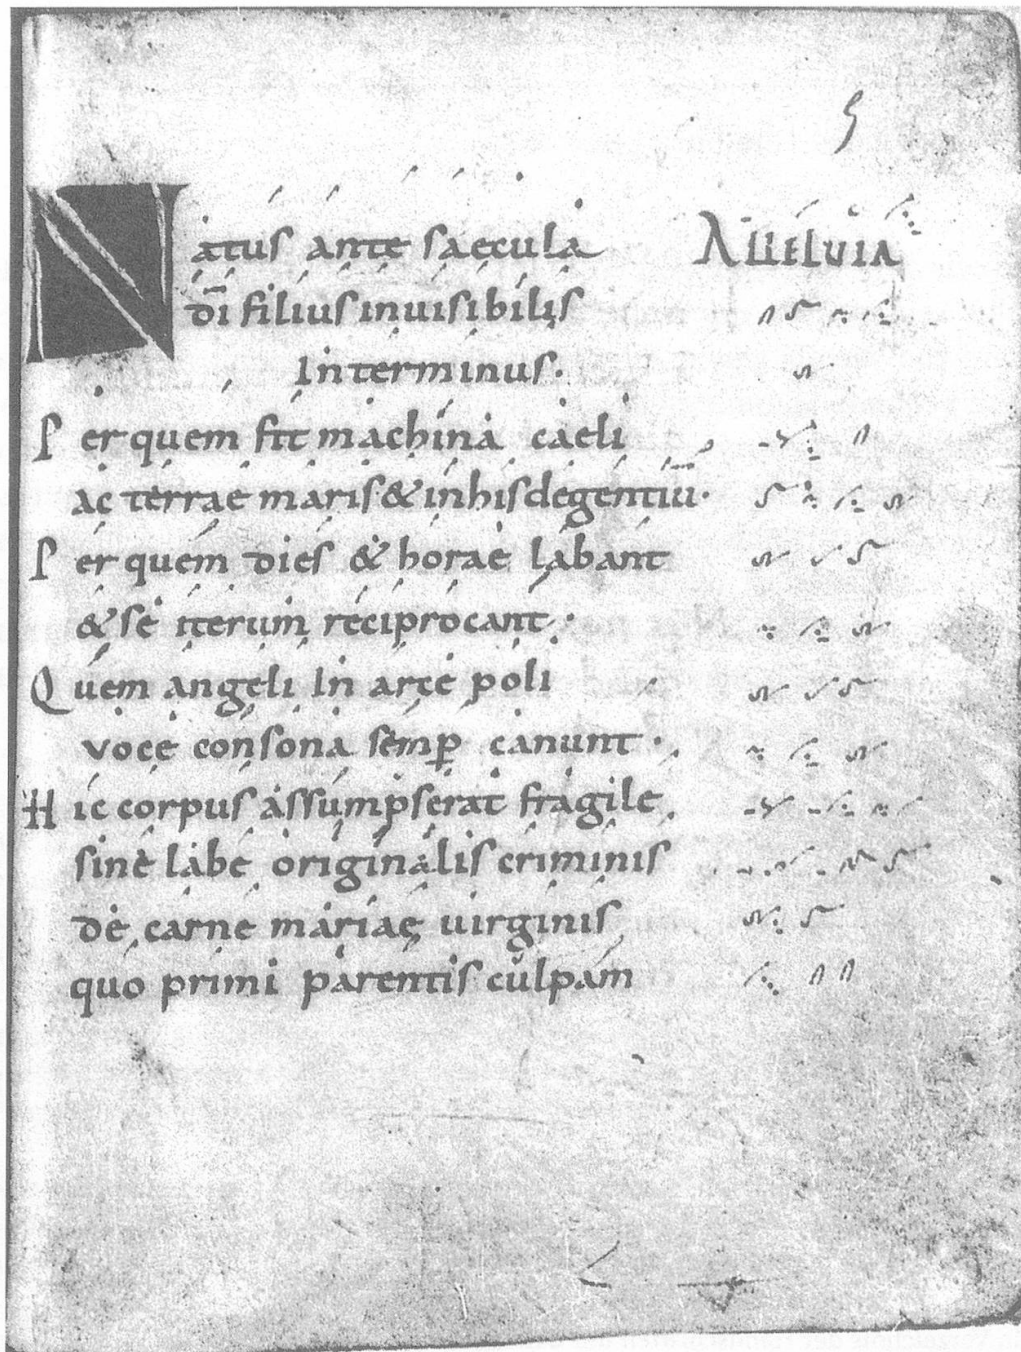 5
Natus ante saecula ALLELUIA
dī filius inuisibilis
Interminus.
Per quem fit machina caeli
ac terrae maris & in his degentiū.
Per quem dies & horae labant
& se iterum reciprocant.
Quem angeli In arce poli
voce consona semꝑ canunt.
Hic corpus assumpserat fragile
sine labe originalis criminis
de carne mariae uirginis
quo primi parentis culpam